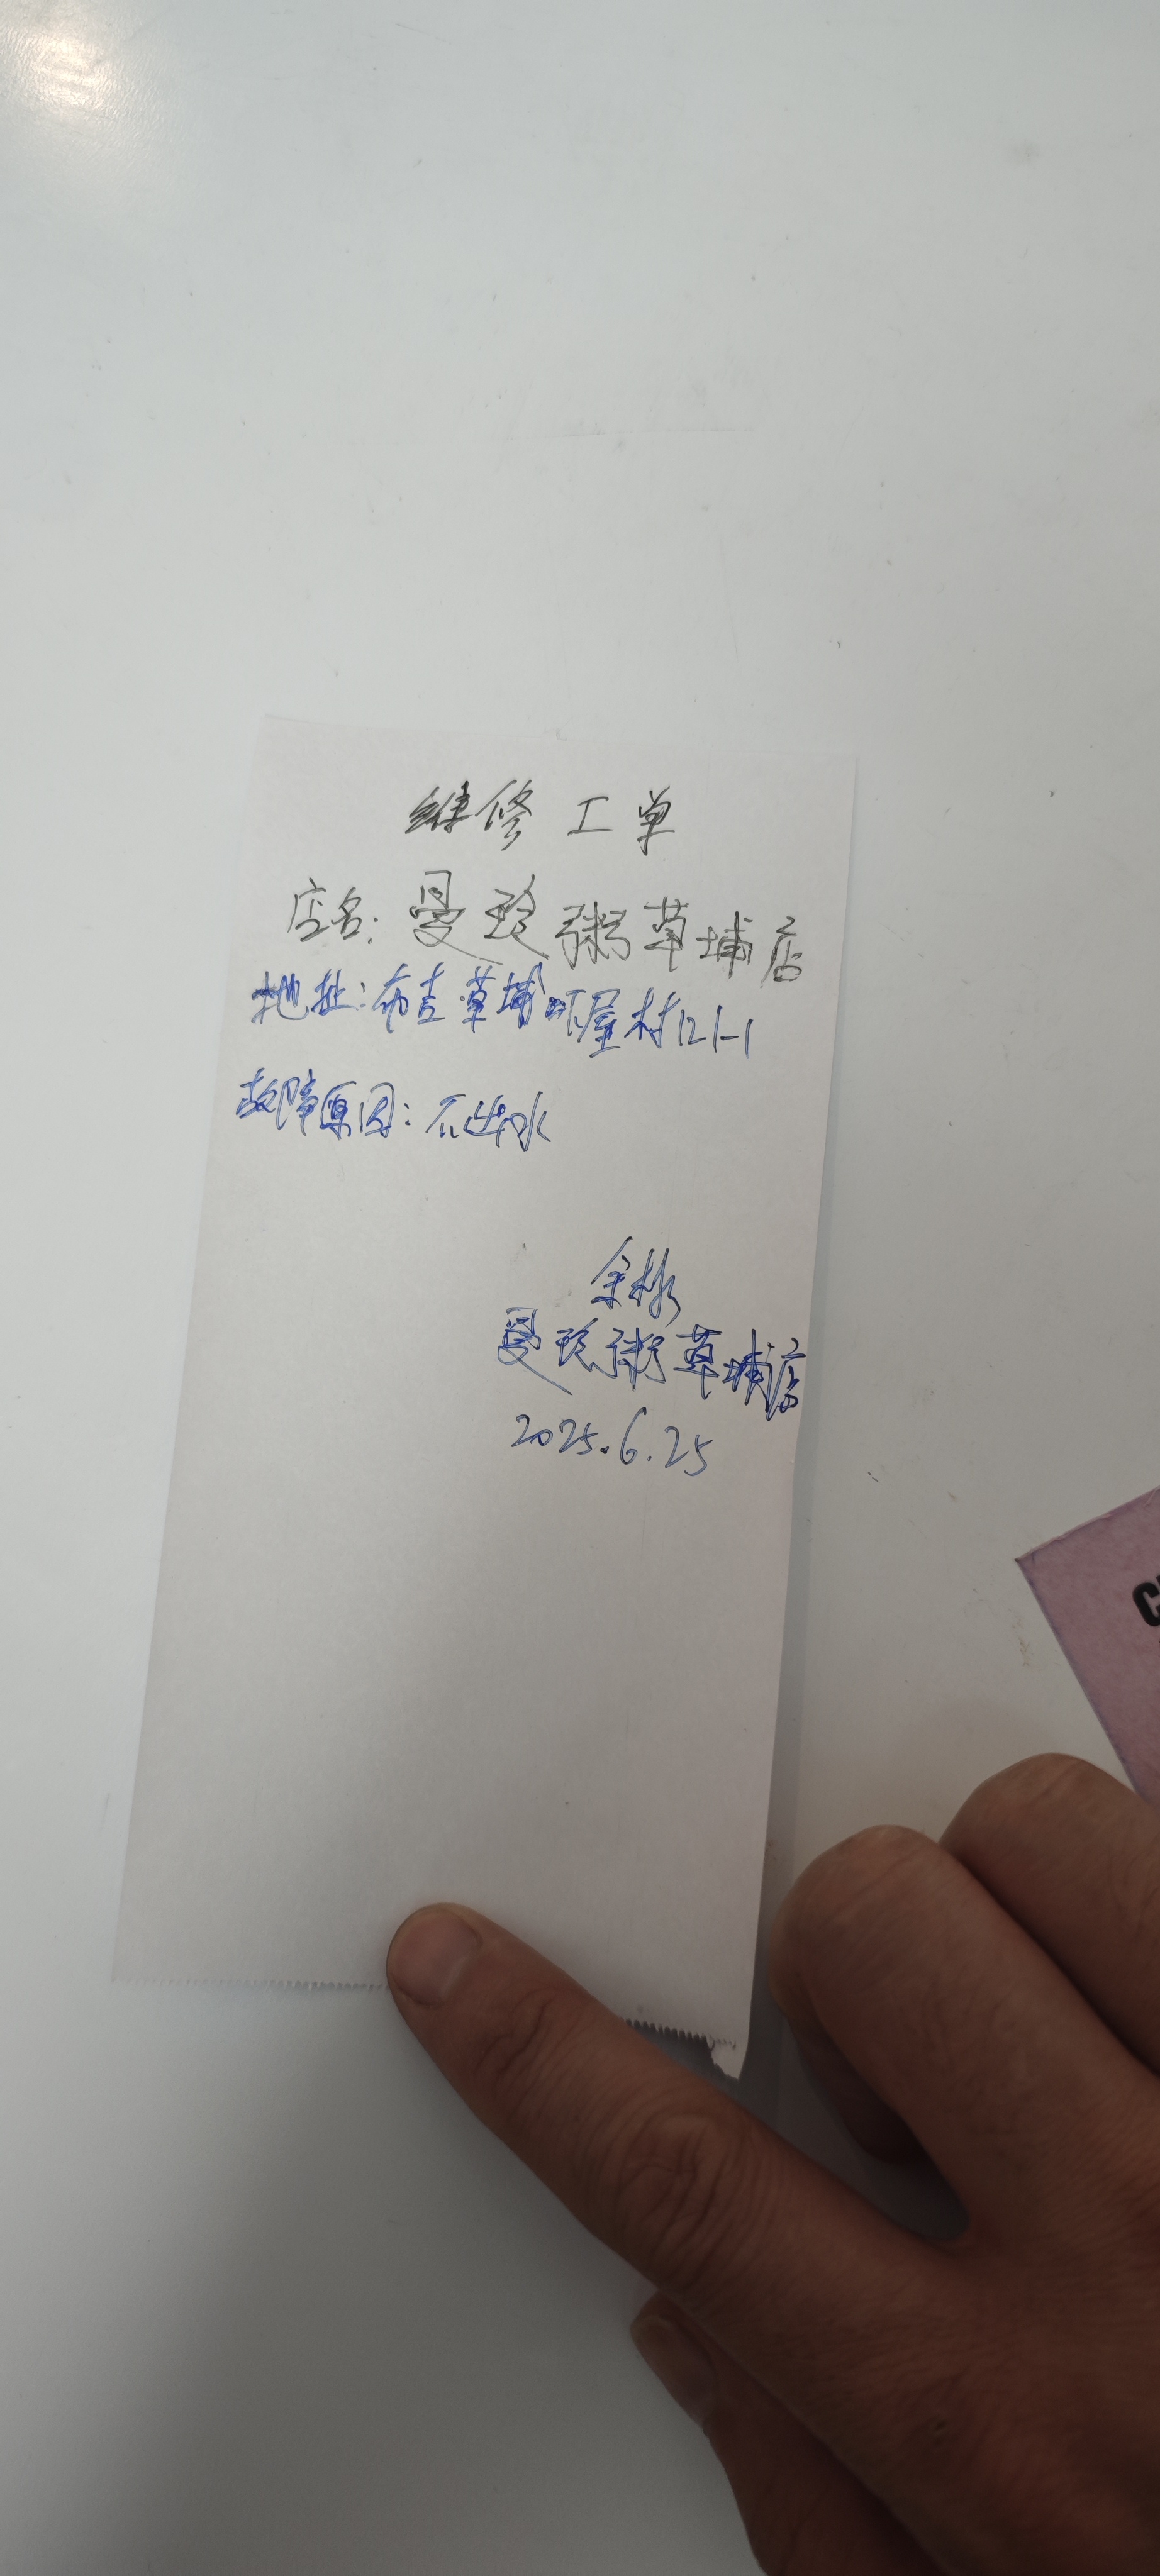 维修工单
店名：曼玲粥草埔店
地址：布吉草埔吓屋村121-1
故障原因：不出水
余林
曼玲粥草埔店
2025.6.25
C